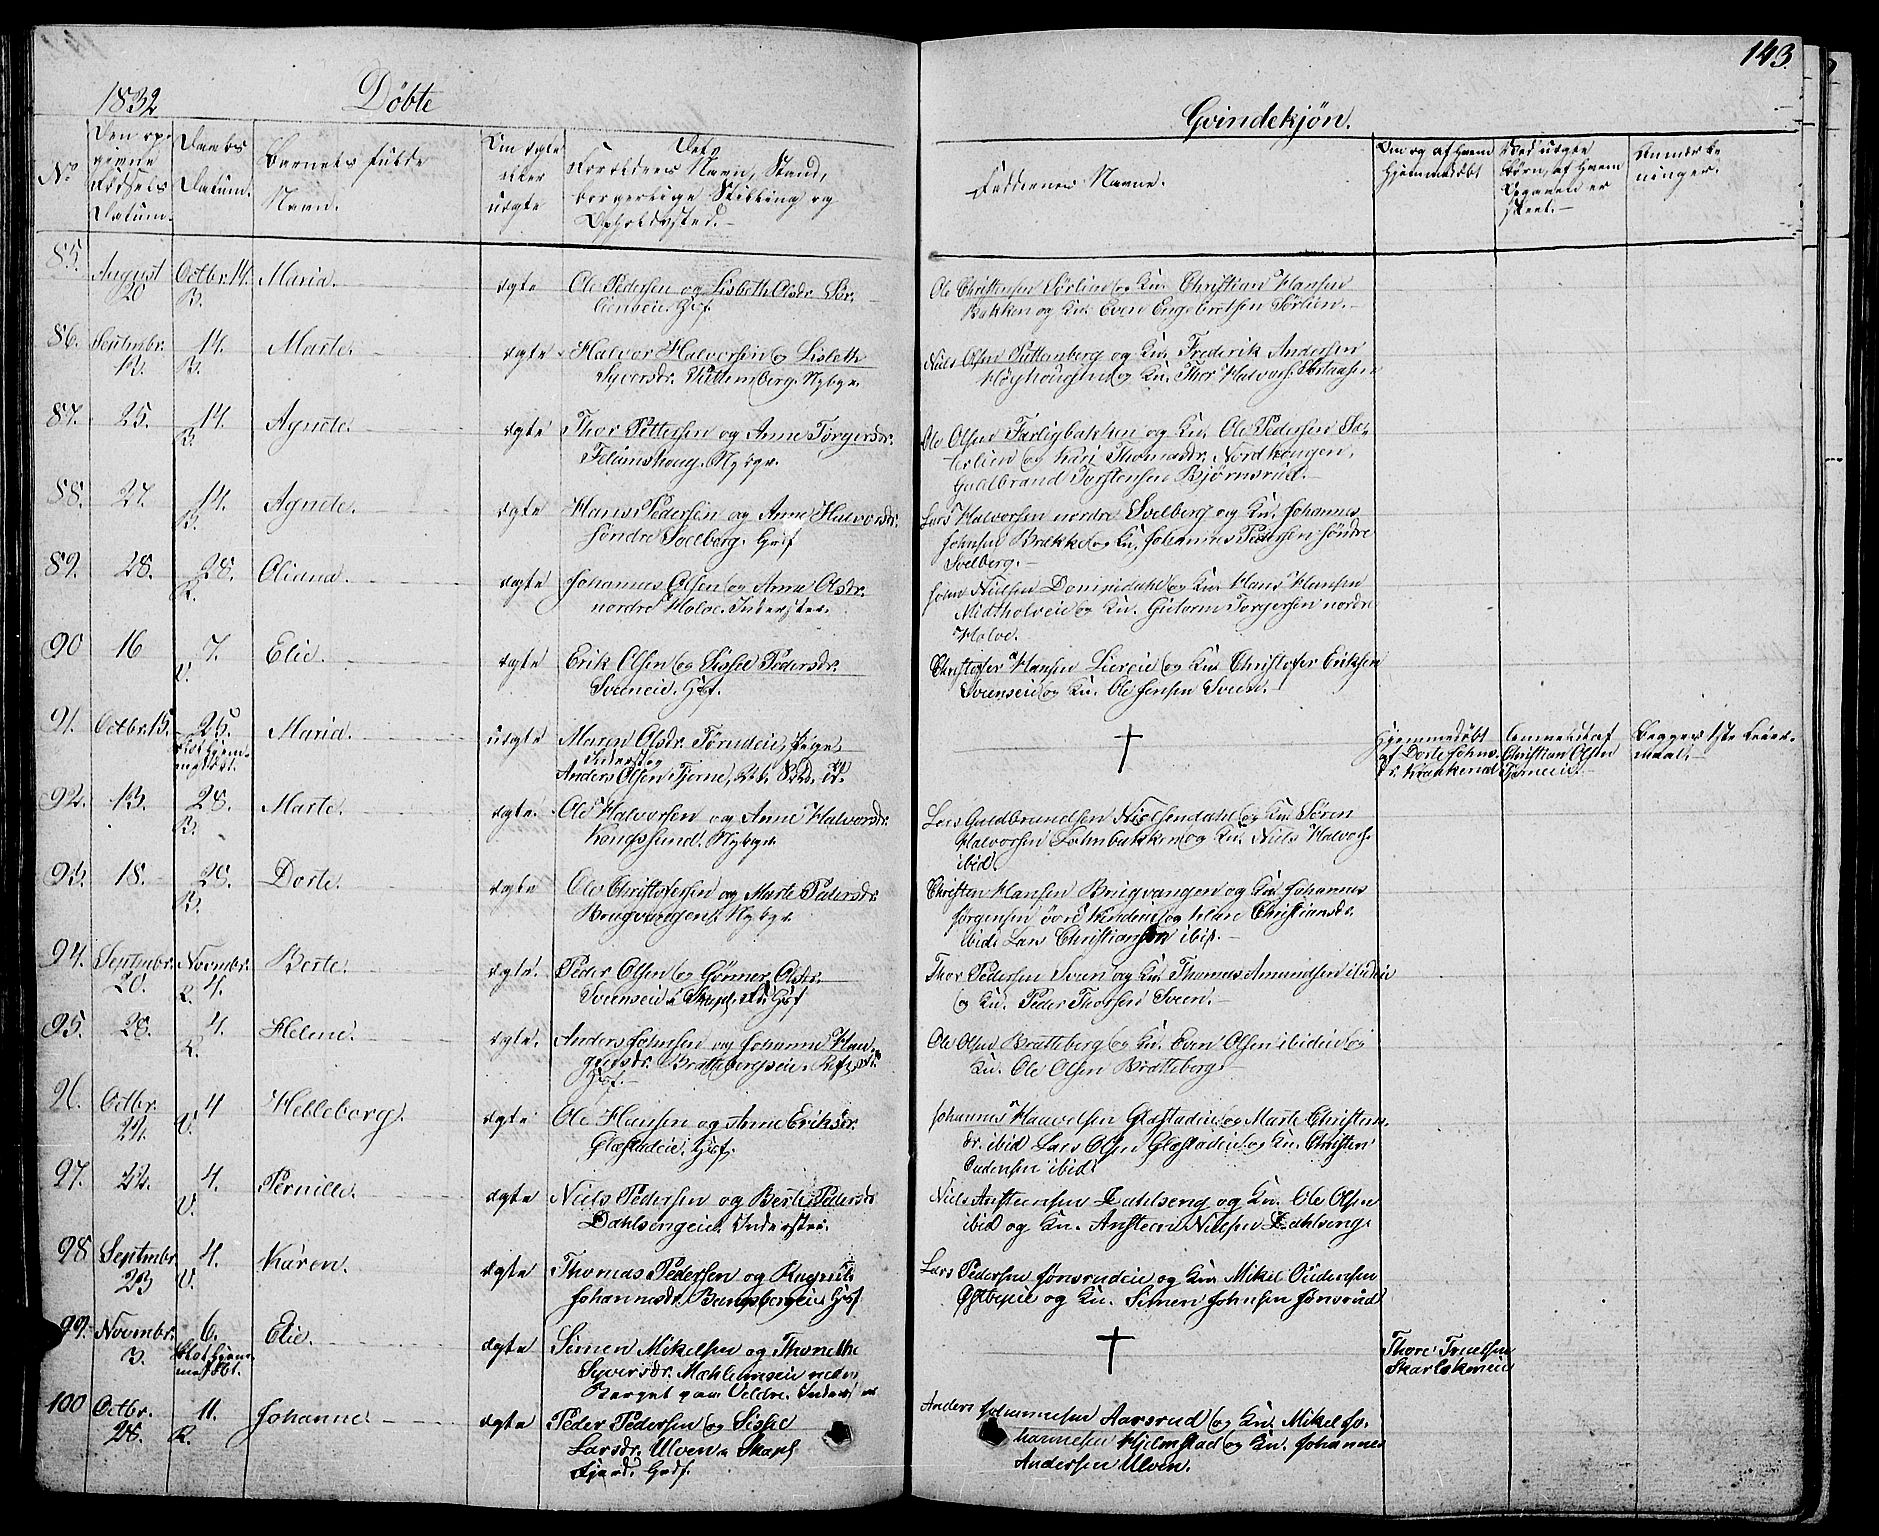 143.
1832 Døbte
Qvindekjøn.
No
Den op-
givne
Fødsels
Datum.
Daabs
Datum.
Barnets fulde
Navn.
Om ægte
eller
uægte
Forældres Navn, Stand,
borgerlige Stilling og
Opholdssted.
Faddernes Navne.
Om og af hvem
hjemmedøbt
Ved uægte
Børn, af hvem
Opgaven er
skeet.
Anmærk-
ninger.
85. August 20 Octbr. 14. B. Maria. ægte Ole Pedersen og Lisbeth Olsdr. Sør-
lieneie. Hsf.
Ole Christensen Sørlien og Kn. Christian Hansen
Bakken og Kn. Even Engebretsen Sørlien.
86. Septmbr. 13. 14. B. Marte. ægte Halvor Halvorsen og Lisbeth
Syversdr. Puttenberg. Nybgr.
Niels Olsen Puttenberg og Kn. Frederik Andersen
Høyhougen og Kn. Thor Halvors.
87. 25. 14. B. Agnete. ægte Thor Pettersen og Anne Torgersdr.
Nybgr.
Ole Olsen Farligbakken og Kn. Ole Pedersen Sæ-
terlien og Kari Thomasdr. Nordhougen,
Guldbrand Torstensen Bjørnsrud.
88. 27. 14. B. Agnete. ægte Hans Pedersen og Anne Halvorsdr.
søndre Svelberg. Grdf
Lars Halvorsen nordre Svelberg og Kn. Johannes
Johnsen Brække og Kn. Johannes Pedersen søndre
Svelberg.
89. 28. 28. R. Oliana. ægte Johannes Olsen og Anne Olsdr.
nordre Holve. Inderster.
John Nielsen Dompidahl og Kn. Hans Hansen
Midtholveie og Kn. Gutorm Torgersen nordre
Holve.
90 16 7. V. Elie. ægte Erik Olsen og Sissel Pedersdr.
Sveneie. Hsf.
Christofer Hansen Liereie og Kn. Christofer Eriksen
Sveenseie og Kn. Ole Jensen Sveen.
91. Octbr. 15. 25. blot hjem-
medøbt. Maria. uægte Maren Olsdr. Tørudeie, Pige,
Inderst og
Anders Olsen Tjerne,
†
Hjemmedøbt
af Dorte Johns-
dr. Krankerud
Anmeldt af
Christian Olsen
Tjerneie.
Begges 1ste Leier-
maal.
92. 13. 28. B. Marte. ægte. Ole Halvorsen og Anne Halvorsdr.
Kongssund. Nybgr.
Lars Guldbrandsen Nielsendahl og Kn. Søren
Halvorsen Lohnbakken og Kn. Niels Halvors.
ibid.
93. 18. 28. B. Dorte. ægte Ole Christofersen og Marte Pedersdr.
Brugvangen. Nybgr.
Christen Hansen Brugvangen og Kn. Johannes
Jørgensen øvre Kindeie og Helene Christiansdr.
ibid. Lars Christiansen ibid.
94. Septmbr. 20. Novmbr. 4. R. Berte. ægte. Peder Olsen og Gønner Olsdr.
Sveenseie Hsf
Thor Pedersen Sveen og Kn. Thomas Amundsen ibideie
og Kn. Peder Thorsen Sveen.
95. 28. 4. R. Helene. ægte. Anders Johnsen og Johanne Han-
Brattebergseie.
Hsf.
Ole Olsen Bratteberg og Kn. Even Olsen ibideie og
Kn. Ole Olsen Bratteberg.
96. Octbr. 24. 4 V. Helleborg. ægte Ole Hansen og Anne Eriksdr.
Glæstadeie. Hsf.
Johannes Haavelsen Glæstadeie og Marte Christens-
dr. ibid Lars Olsen Glæstadeie og Kn. Christen
Paulsen ibid.
97. 22. 4. V. Pernille. ægte Niels Pedersen og Berte Pedersdr.
Dahlsengeie. Inderster.
Niels Anstensen Dahlseng og Kn. Ole Olsen
ibid og Kn. Ansteen Nielsen Dahlseng.
98 Septmbr. 23 4. V. Karen. ægte Thomas Pedersen og Ragnild
Johannesdr. Bangsbergeie Hsf
Lars Pedersen Jønsrudeie og Kn. Mikel Gudensen
Østbyeie og Kn. Simen Johnsen Jønsrud
99. Novmbr. 3. 6. blot hjem-
medøbt. Elie. ægte Simen Mikelsen og Thonette
Syversdr. Mæhlumseie neden
Berget paa Veldre. Inderster
†
Thore Truelsen
100 Octbr. 28. 11. R. Johanne. ægte Peder Pedersen og Sissel
Larsdr. Ulven. Skarp-
fjerd. Grdf.
Anders Johannesen Aarsrud og Kn. Mikel Jo-
hannesen Hjelmstad og Kn. Johannes
Andersen Ulven.